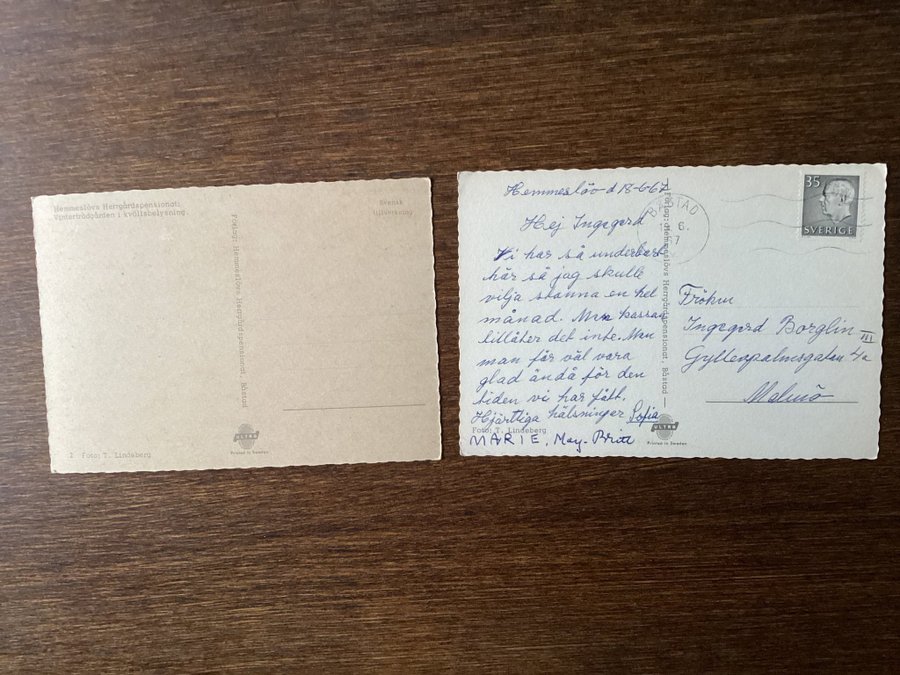 Hemmeslövs Herrgårdspensionat:
Vinterträdgården i kvällsbelysning.
Svensk
tillverkning
Förlag: Hemmeslövs Herrgårdspensionat, Båstad
ULTRA
Printed in Sweden
2 Foto: T. Lindeberg
Hemmeslöv d 18-6-67
Hej Ingegerd
Vi har så underbart
här så jag skulle
vilja stanna en hel
månad. Men kassan
tillåter det inte. Men
man får väl vara
glad ändå för den
tiden vi har fått.
Hjärtliga hälsninger Sofia
Foto: T. Lindeberg
MARIE, May-Britt
Förlag: Hemmeslövs Herrgårdspensionat, Båstad
ULTRA
Printed in Sweden
BÅSTAD
6.
67
35
SVERIGE
Fröken
Ingegerd Borglin
Gyllenpalmsgatan 4a III
Malmö